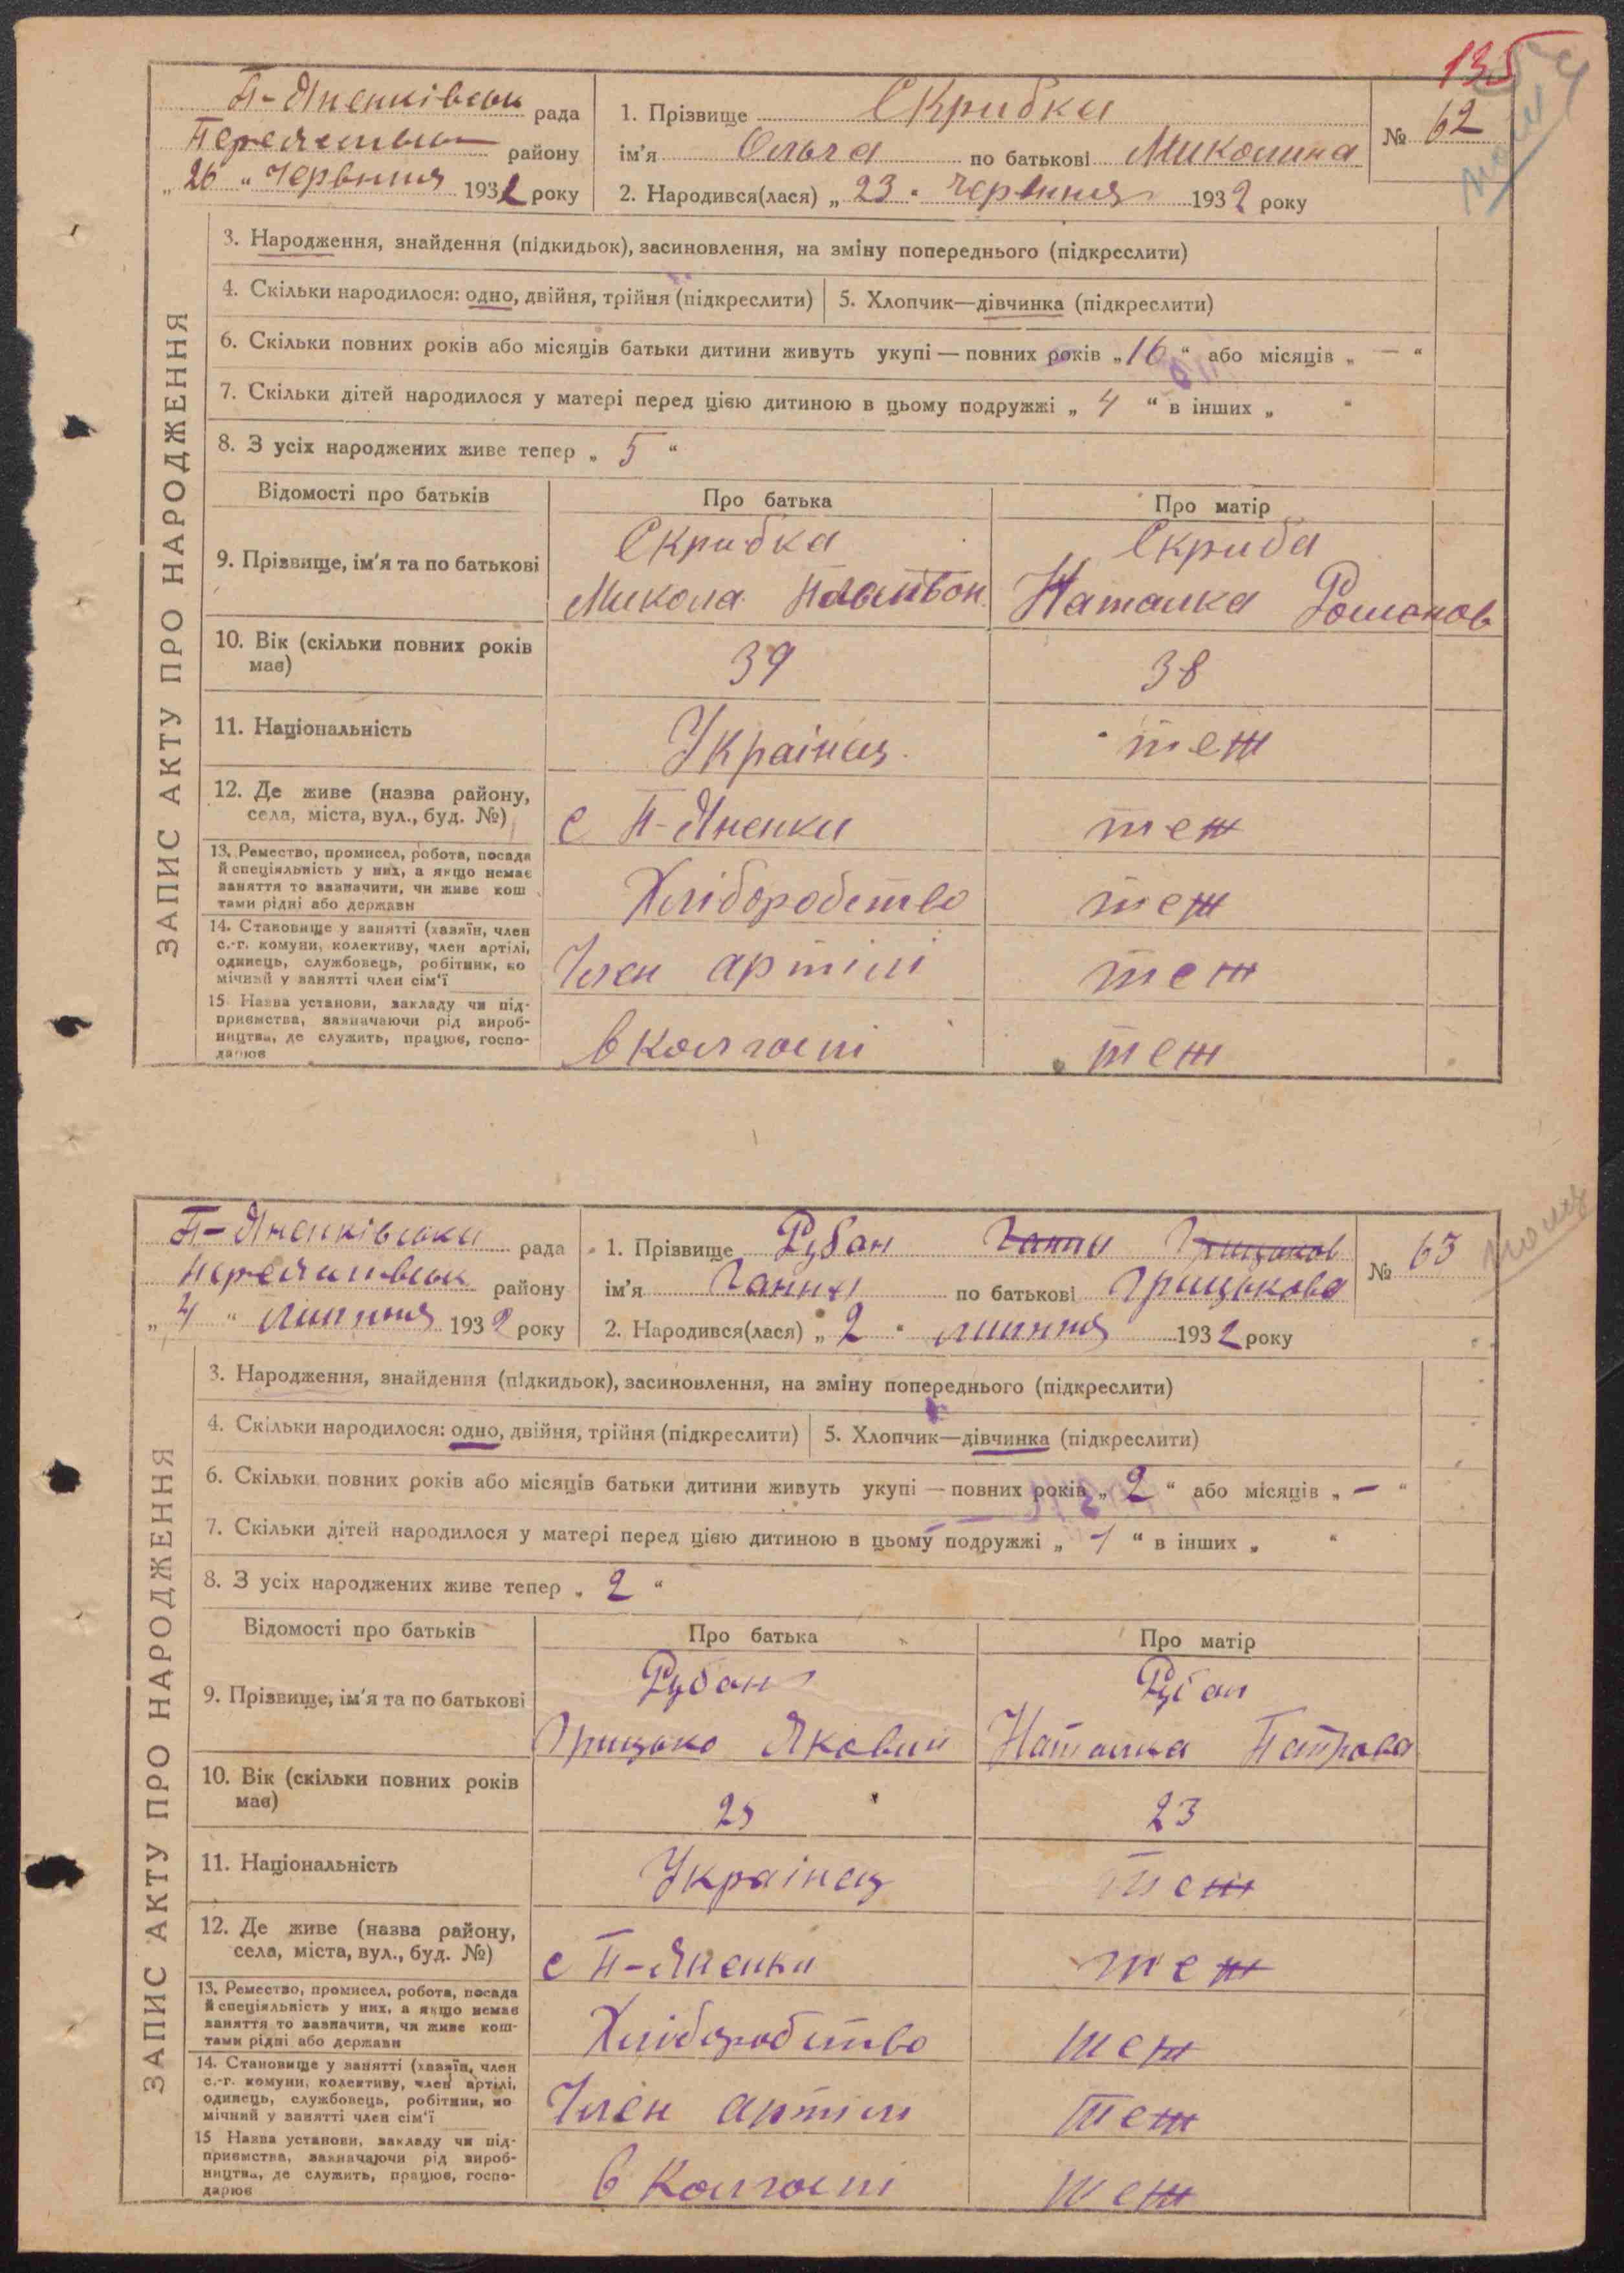 135
П-Яненківськ рада
Переяславськ району
„ 26 “ Червника 1932 року
1. Прізвище Скрибка
ім'я Ольга по батькові Миколина
2. Народився(лася) „ 23 “ Червника 1932 року
№ 62
ЗАПИС АКТУ ПРО НАРОДЖЕННЯ
3. Народження, знайдення (підкидьок), засиновлення, на зміну попереднього (підкреслити)
4. Скільки народилося: одно, двійня, трійня (підкреслити) 5. Хлопчик—дівчинка (підкреслити)
6. Скільки повних років або місяців батьки дитини живуть укупі — повних років „ 16 “ або місяців „ — “
7. Скільки дітей народилося у матері перед цією дитиною в цьому подружжі „ 4 “ в інших „ “
8. З усіх народжених живе тепер „ 5 “
Відомості про батьків Про батька Про матір
9. Прізвище, ім'я та по батькові
Скрибка Скриба
Микола Платон. Наталка Романов
10. Вік (скільки повних років має) 39 38
11. Національність Українец. теж
12. Де живе (назва району,
села, міста, вул., буд. №) с П-Яненки теж
13. Ремество, промисел, робота, посада
й спеціяльність у них, а якщо немає
заняття то зазначити, чи живе кош
тами рідні або держави
Хліборобство теж
14. Становище у занятті (хазяїн, член
с.-г. комуни, колективу, член артілі,
одинець, службовець, робітник, по
мічний у занятті член сім'ї
Член артілі теж
15 Назва установи, закладу чи під-
приємства, зазначаючи рід вироб-
ництва, де служить, працює, госпо-
дарює
в Колгоспі теж
П-Яненківська рада
Переяславськ району
„ 4 “ липння 1932 року
1. Прізвище Рубан Ганны Грицьков
ім'я Ганны по батькові Грицькова
2. Народився(лася) „ 2 “ липння 1932 року
№ 63
ЗАПИС АКТУ ПРО НАРОДЖЕННЯ
3. Народження, знайдення (підкидьок), засиновлення, на зміну попереднього (підкреслити)
4. Скільки народилося: одно, двійня, трійня (підкреслити) 5. Хлопчик—дівчинка (підкреслити)
6. Скільки повних років або місяців батьки дитини живуть укупі — повних років „ 2 “ або місяців „ — “
7. Скільки дітей народилося у матері перед цією дитиною в цьому подружжі „ 1 “ в інших „ “
8. З усіх народжених живе тепер „ 2 “
Відомості про батьків Про батька Про матір
9. Прізвище, ім'я та по батькові
Рубан Рубан
Грицько Яковин Наталка Петрова
10. Вік (скільки повних років має) 25 23
11. Національність Українец теж
12. Де живе (назва району,
села, міста, вул., буд. №) с П-Яненки теж
13. Ремество, промисел, робота, посада
й спеціяльність у них, а якщо немає
заняття то зазначити, чи живе кош-
тами рідні або держави
Хліборобство теж
14. Становище у занятті (хазяїн, член
с.-г. комуни, колективу, член артілі,
одинець, службовець, робітник, по
мічний у занятті член сім'ї
Член артіли теж
15 Назва установи, закладу чи під-
приємства, зазначаючи рід вироб-
ництва, де служить, працює, госпо-
дарює
в Колгоспі теж